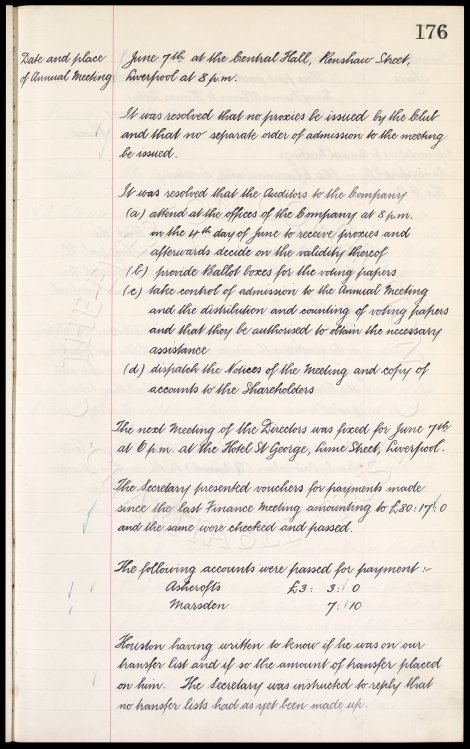 176
Date and place
of Annual Meeting
June 7th at the Central Hall, Renshaw Street,
Liverpool at 8 p.m.
It was resolved that no proxies be issued by the Club
and that no separate order of admission to the meeting
be issued.
It was resolved that the Auditors to the Company
(a) attend at the offices of the Company at 8 p.m.
on the 4th day of June to receive proxies and
afterwards decide on the validity thereof
(b) provide Ballot boxes for the voting papers
(c) take control of admission to the Annual Meeting
and the distribution and counting of voting papers
and that they be authorised to obtain the necessary
assistance
(d) dispatch the Notices of the Meeting and copy of
accounts to the Shareholders
The next Meeting of the Directors was fixed for June 7th
at 6 p.m. at the Hotel St George, Lime Street, Liverpool.
The Secretary presented vouchers for payments made
since the last Finance Meeting amounting to £80: 17: 0
and the same were checked and passed.
The following accounts were passed for payment :-
Ashcrofts £3: 3: 0
Marsden 7: 10
Houston having written to know if he was on our
transfer list and if so the amount of transfer placed
on him. The Secretary was instructed to reply that
no transfer lists had as yet been made up.